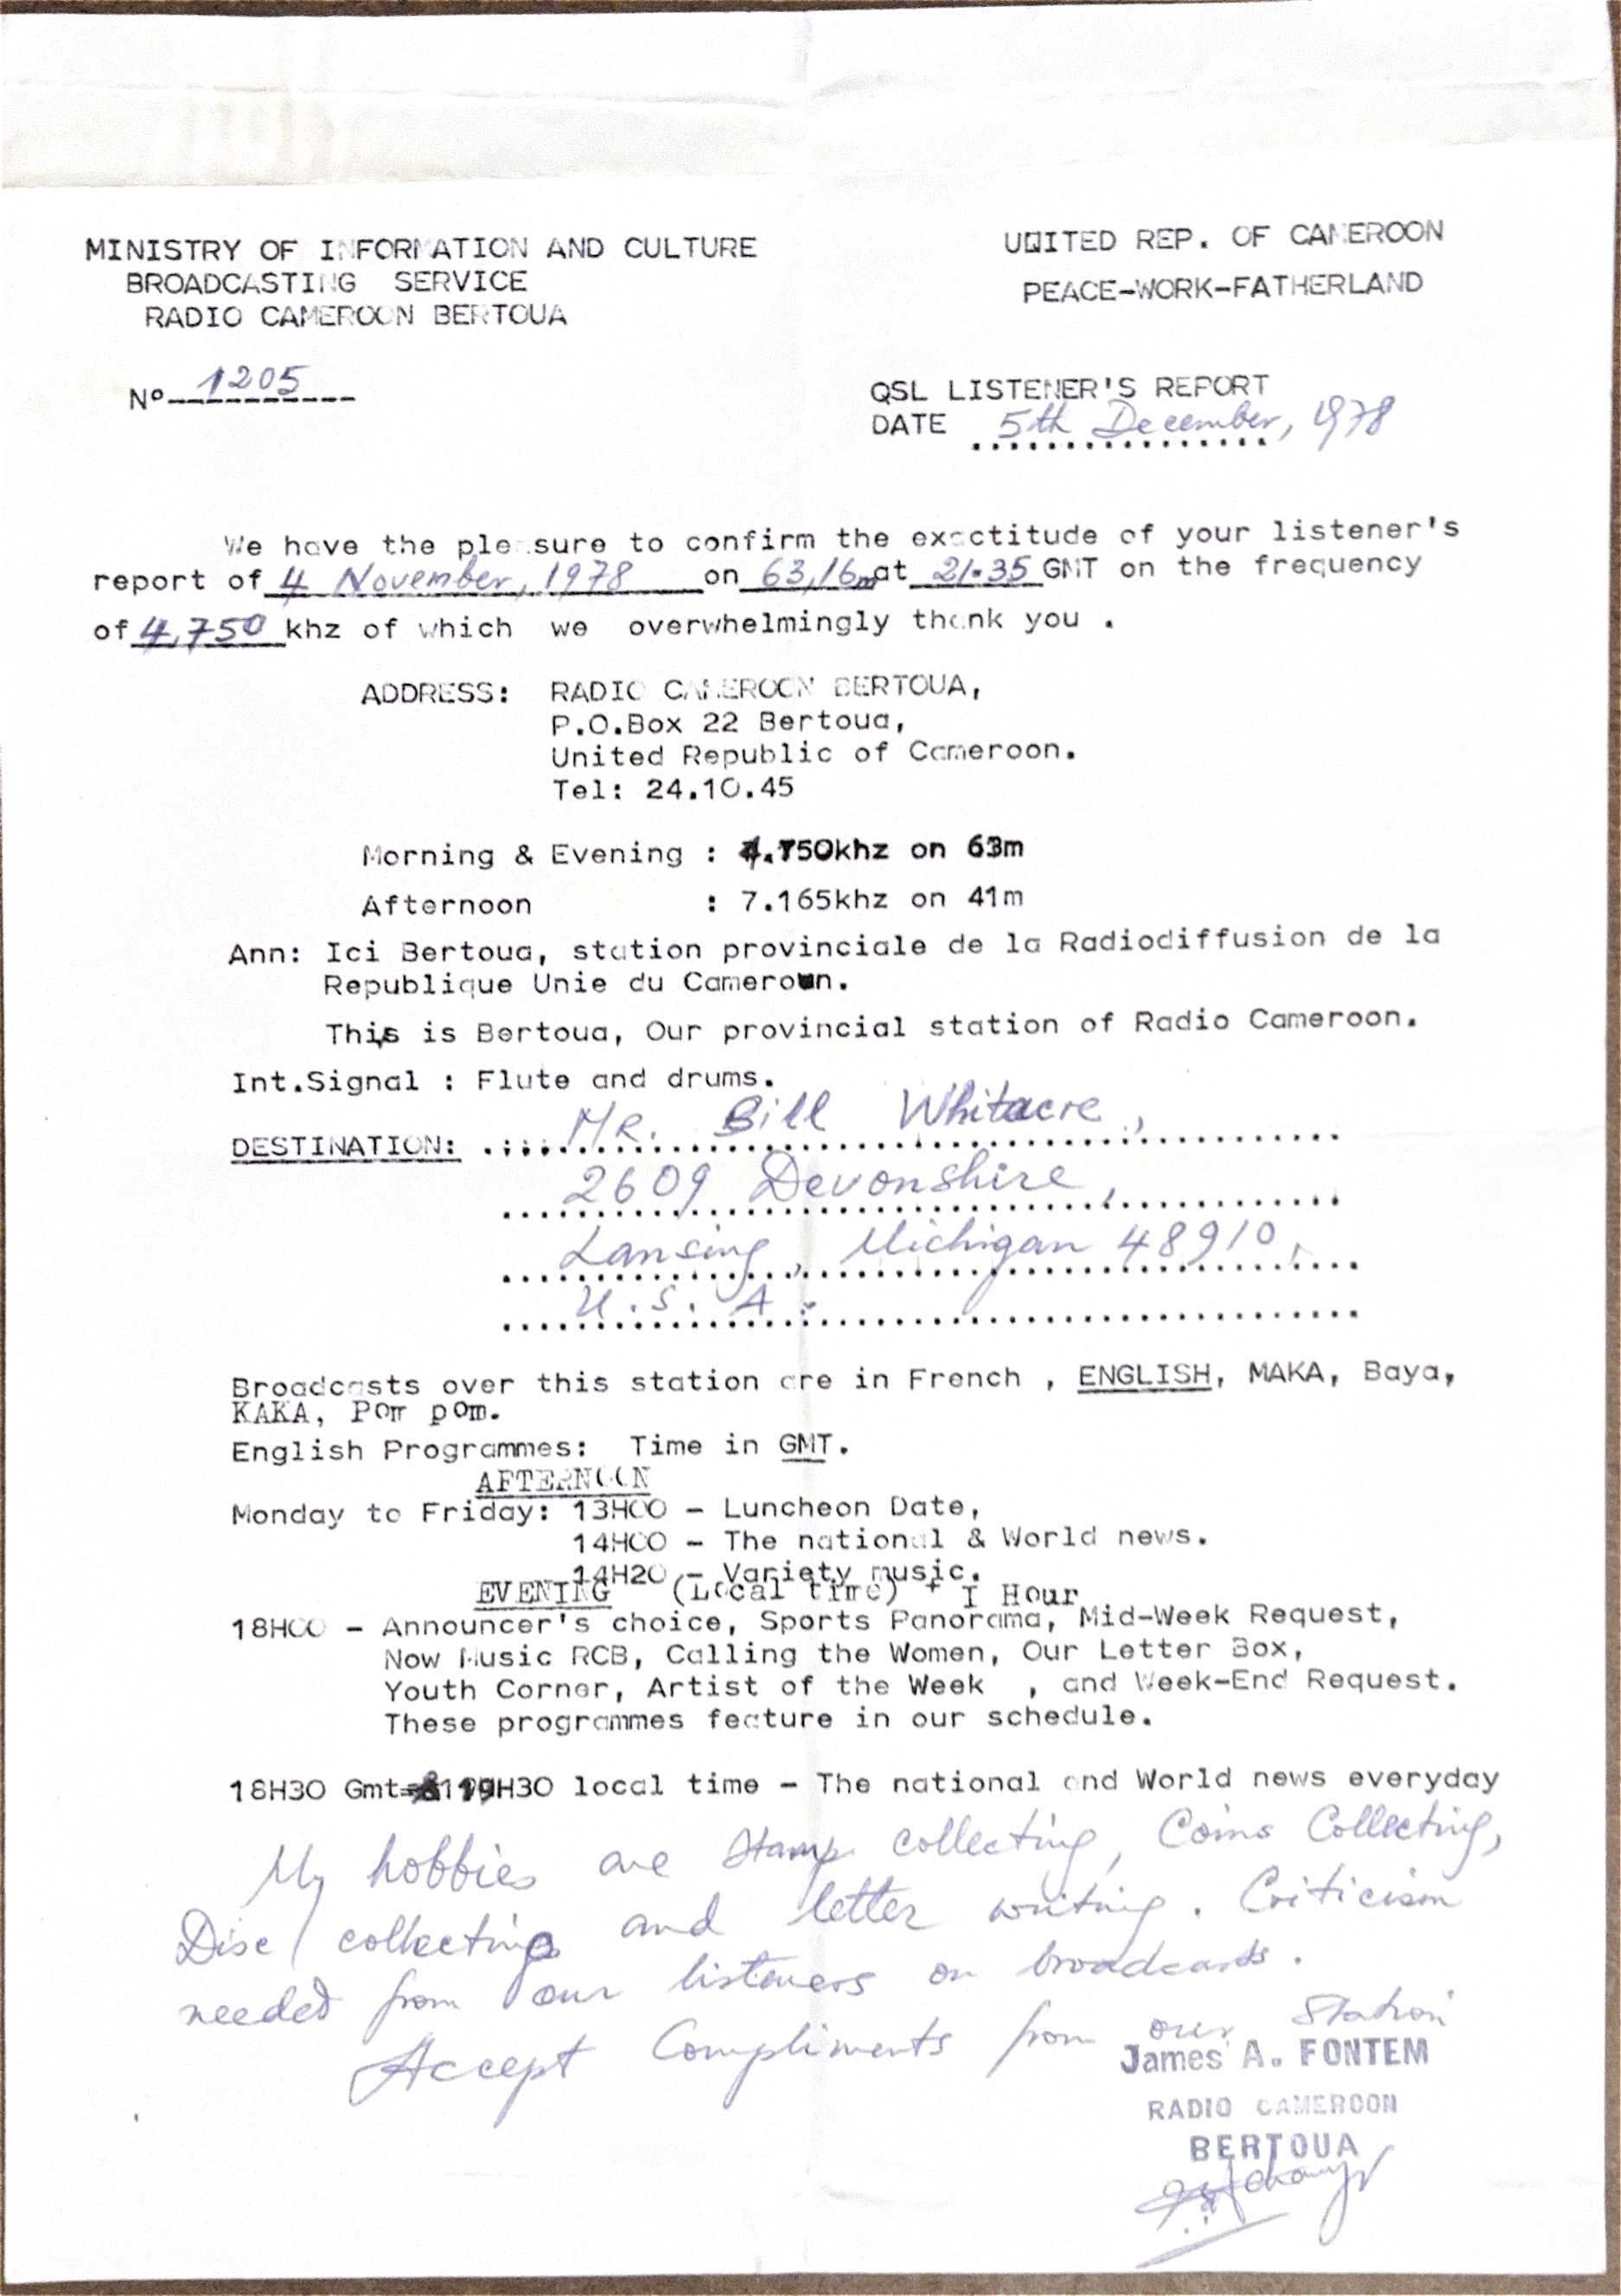 MINISTRY OF INFORMATION AND CULTURE
BROADCASTING SERVICE
RADIO CAMEROON BERTOUA
UNITED REP. OF CAMEROON
PEACE-WORK-FATHERLAND
Nº 1205
QSL LISTENER'S REPORT
DATE 5th December, 1978
We have the pleasure to confirm the exactitude of your listener's
report of 4 November, 1978 on 63,16m at 21.35 GMT on the frequency
of 4,750 khz of which we overwhelmingly thank you .
ADDRESS: RADIO CAMEROON BERTOUA,
P.O.Box 22 Bertoua,
United Republic of Cameroon.
Tel: 24.10.45
Morning & Evening : 4.750khz on 63m
Afternoon : 7.165khz on 41m
Ann: Ici Bertoua, station provinciale de la Radiodiffusion de la
Republique Unie du Cameroun.
This is Bertoua, Our provincial station of Radio Cameroon.
Int.Signal : Flute and drums.
DESTINATION: Mr. Bill Whitacre,
2609 Devonshire,
Lansing, Michigan 48910,
U.S.A.
Broadcasts over this station are in French , ENGLISH, MAKA, Baya,
KAKA, Pom pom.
English Programmes: Time in GMT.
AFTERNOON
Monday to Friday: 13H00 - Luncheon Date,
14H00 - The national & World news.
14H20 - Variety music.
EVENING (Local time) + I Hour
18H00 - Announcer's choice, Sports Panorama, Mid-Week Request,
Now Music RCB, Calling the Women, Our Letter Box,
Youth Corner, Artist of the Week , and Week-End Request.
These programmes feature in our schedule.
18H30 Gmt= 19H30 local time - The national and World news everyday
My hobbies are stamp collecting, Coins Collecting,
Disc collecting and letter writing. Criticism
needed from our listeners on broadcasts.
Accept Compliments from our Station
James A. FONTEM
RADIO CAMEROON
BERTOUA